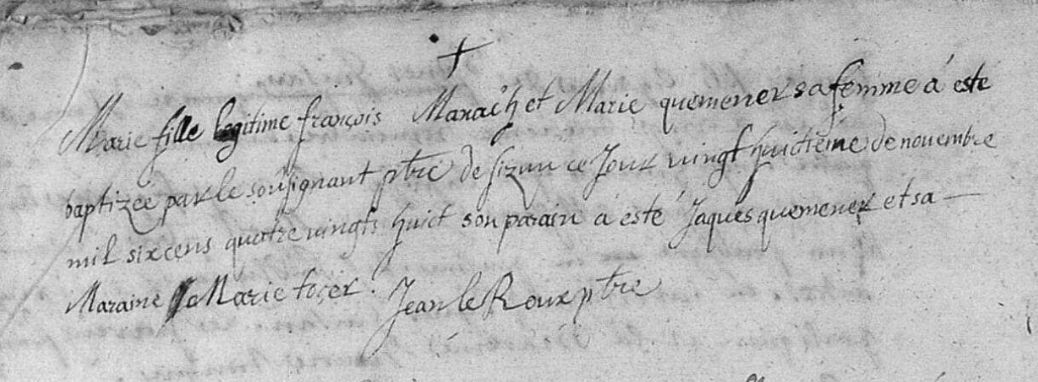 Marie fille legitime françois Manach et Marie quemener sa femme á esté
baptizée par le soussignant ptre de sizun ce Jour vingt huictieme de novembre
mil six cens quatre vingts huict son parain a esté Jaques quemener et sa
Maraine Marie
Jean le Roux ptre